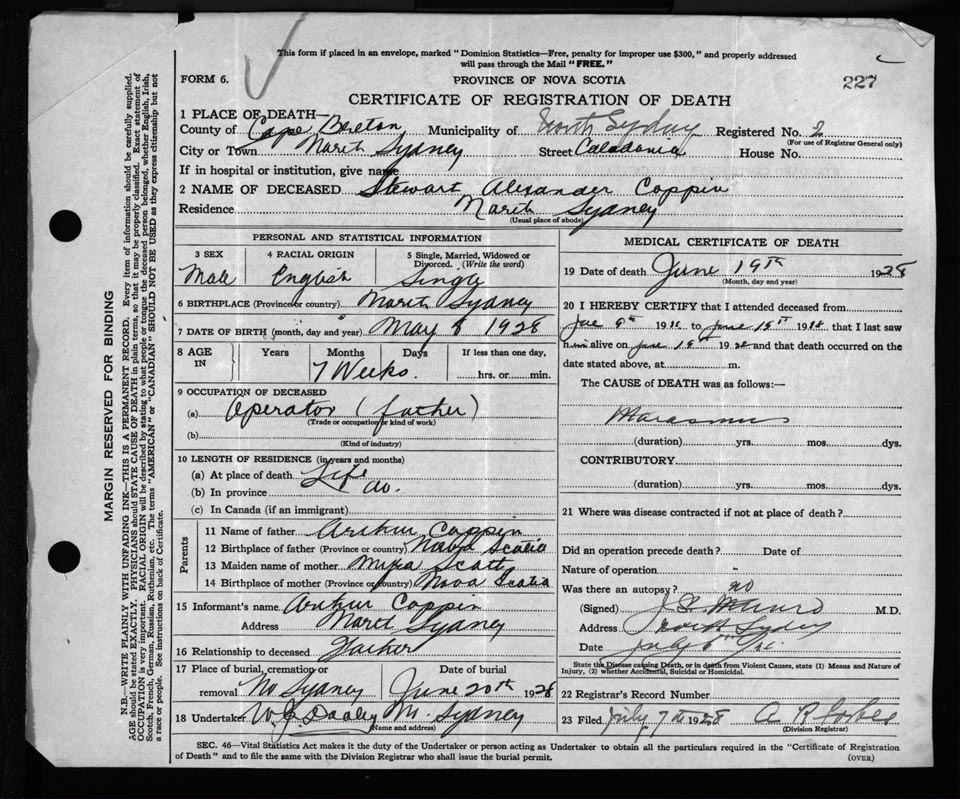 This form if placed in an envelope, marked "Dominion Statistics—Free, penalty for improper use $300," and properly addressed
will pass through the Mail "FREE."
FORM 6.
PROVINCE OF NOVA SCOTIA
227
CERTIFICATE OF REGISTRATION OF DEATH
1 PLACE OF DEATH—
County of Cape Breton Municipality of North Sydney Registered No. 2
(For use of Registrar General only)
City or Town North Sydney Street Caladonia House No.
If in hospital or institution, give name
2 NAME OF DECEASED Stewart Alexander Coppin
Residence North Sydney
(Usual place of abode)
PERSONAL AND STATISTICAL INFORMATION
3 SEX
4 RACIAL ORIGIN
5 Single, Married, Widowed or
Divorced. (Write the word)
Male English Single
6 BIRTHPLACE (Province or country) North Sydney
7 DATE OF BIRTH (month, day and year) May 8 1928
8 AGE IN
Years Months Days If less than one day,
7 Weeks. hrs. or min.
9 OCCUPATION OF DECEASED
(a) Operator (father)
(Trade or occupation or kind of work)
(b)
(Kind of industry)
10 LENGTH OF RESIDENCE (in years and months)
(a) At place of death Life
(b) In province do.
(c) In Canada (if an immigrant)
Parents
11 Name of father Arthur Coppin
12 Birthplace of father (Province or country) Nova Scotia
13 Maiden name of mother Scott
14 Birthplace of mother (Province or country) Nova Scotia
15 Informant's name Arthur Coppin
Address North Sydney
16 Relationship to deceased Father
17 Place of burial, cremation or Date of burial
removal No Sydney June 20th 1928
18 Undertaker W J Dooley N. Sydney
(Name and address)
MEDICAL CERTIFICATE OF DEATH
19 Date of death June 19th 1928
(Month, day and year)
20 I HEREBY CERTIFY that I attended deceased from
9th 19 to June 19th 1928, that I last saw
him alive on June 19th 1928 and that death occurred on the
date stated above, at m.
The CAUSE of DEATH was as follows:—
Marasmus
(duration) yrs. mos. dys.
CONTRIBUTORY
(duration) yrs. mos. dys.
21 Where was disease contracted if not at place of death?
Did an operation precede death? Date of
Nature of operation
Was there an autopsy? no
(Signed) Munro M.D.
Address North Sydney
Date July 6th
State the Disease causing Death, or in death from Violent Causes, state (1) Means and Nature of
Injury, (2) whether Accidental, Suicidal or Homicidal.
22 Registrar's Record Number
23 Filed July 7th 1928 A R Forbes
(Division Registrar)
SEC. 46—Vital Statistics Act makes it the duty of the Undertaker or person acting as Undertaker to obtain all the particulars required in the "Certificate of Registration
of Death" and to file the same with the Division Registrar who shall issue the burial permit.
(OVER)
MARGIN RESERVED FOR BINDING
N.B.—WRITE PLAINLY WITH UNFADING INK—THIS IS A PERMANENT RECORD. Every item of information should be carefully supplied.
AGE should be stated EXACTLY. PHYSICIANS should STATE CAUSE OF DEATH in plain terms, so that it may be properly classified. Exact statement of
OCCUPATION is very important. RACIAL ORIGIN will be described by stating to what people or tongue the deceased person belonged, whether English, Irish,
Scotch, French, German, Russian, Ruthenian, etc. The terms "AMERICAN" or "CANADIAN" SHOULD NOT BE USED as they express citizenship but not
a race or people. See instructions on back of Certificate.